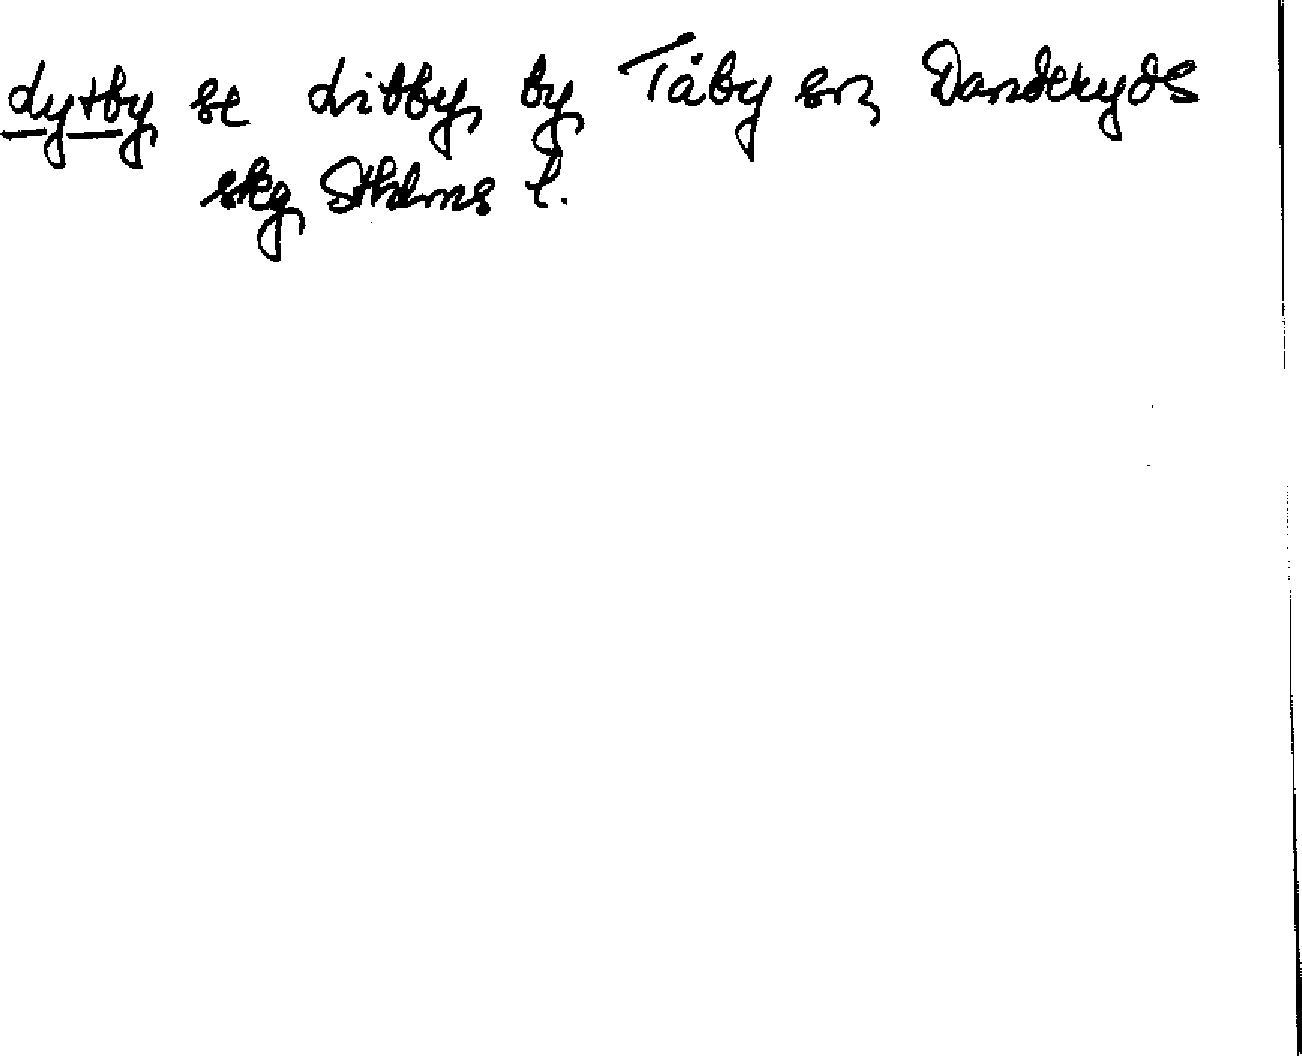 Lytby se Litby, by, Täby sn, Danderyds
skg, Sthlms l.